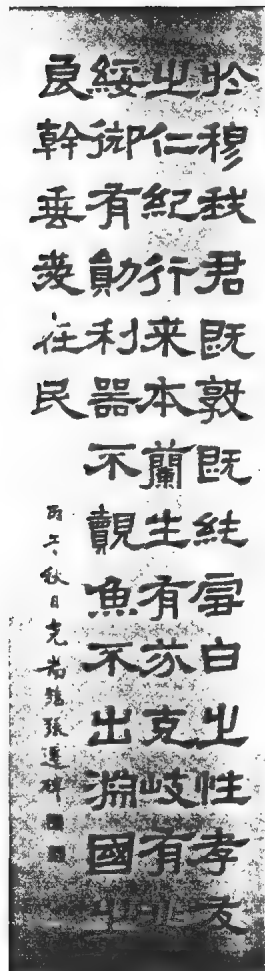 於穆我君既敦既純雪白之性孝友
之仁紀行来本蘭生有芬克岐有兆
綏御有勛利器不覿魚不出淵國之
良幹垂愛在民
丙午秋日克耑臨張遷碑